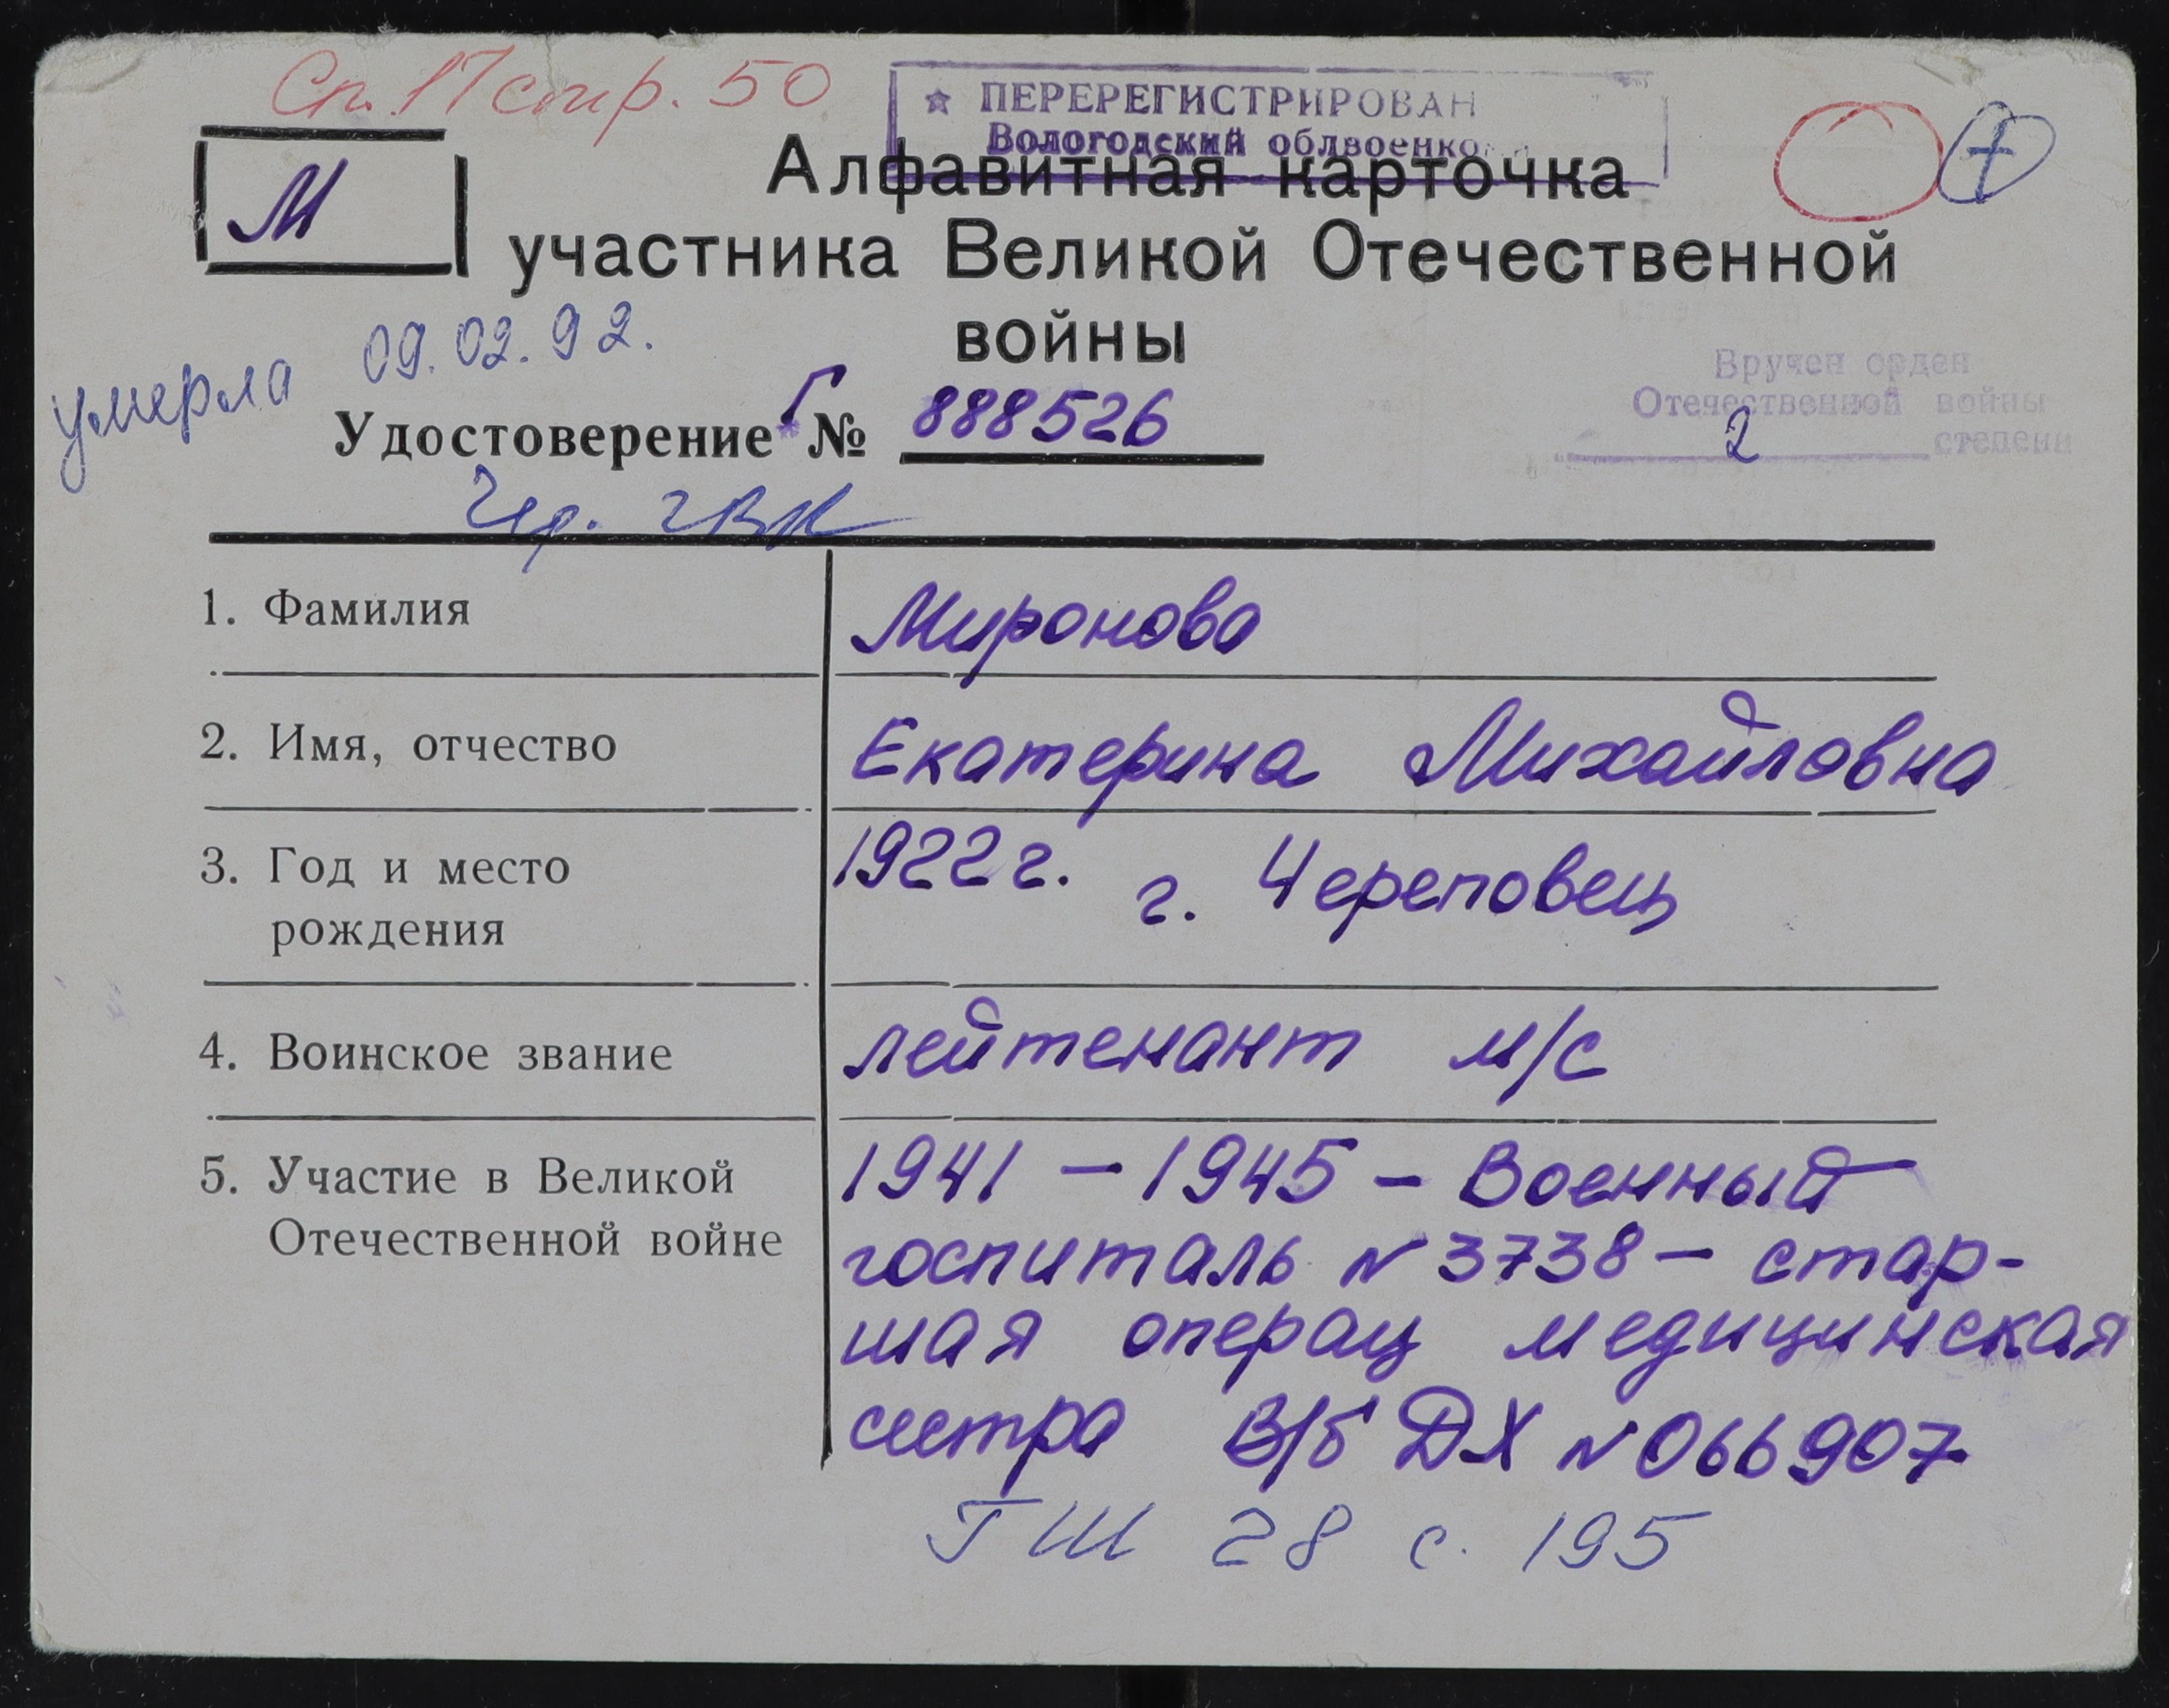 Сп. 17 стр. 50
★ ПЕРЕРЕГИСТРИРОВАН
Вологодский облвоенко
М
Алфавитная карточка
участника Великой Отечественной
войны
умерла 09.02.92.
Удостоверение Г № 888526
Вручен орден
Отечественной войны
2 степени
Чер. ГВК
1. Фамилия Миронова
2. Имя, отчество Екатерина Михайловна
3. Год и место 1922 г. г. Череповец
рождения
4. Воинское звание лейтенант м/с
5. Участие в Великой 1941 – 1945 – Военный
Отечественной войне госпиталь № 3738 – стар-
шая операц медицинская
сестра В/б ДХ № 066907
ГШ 28 с. 195